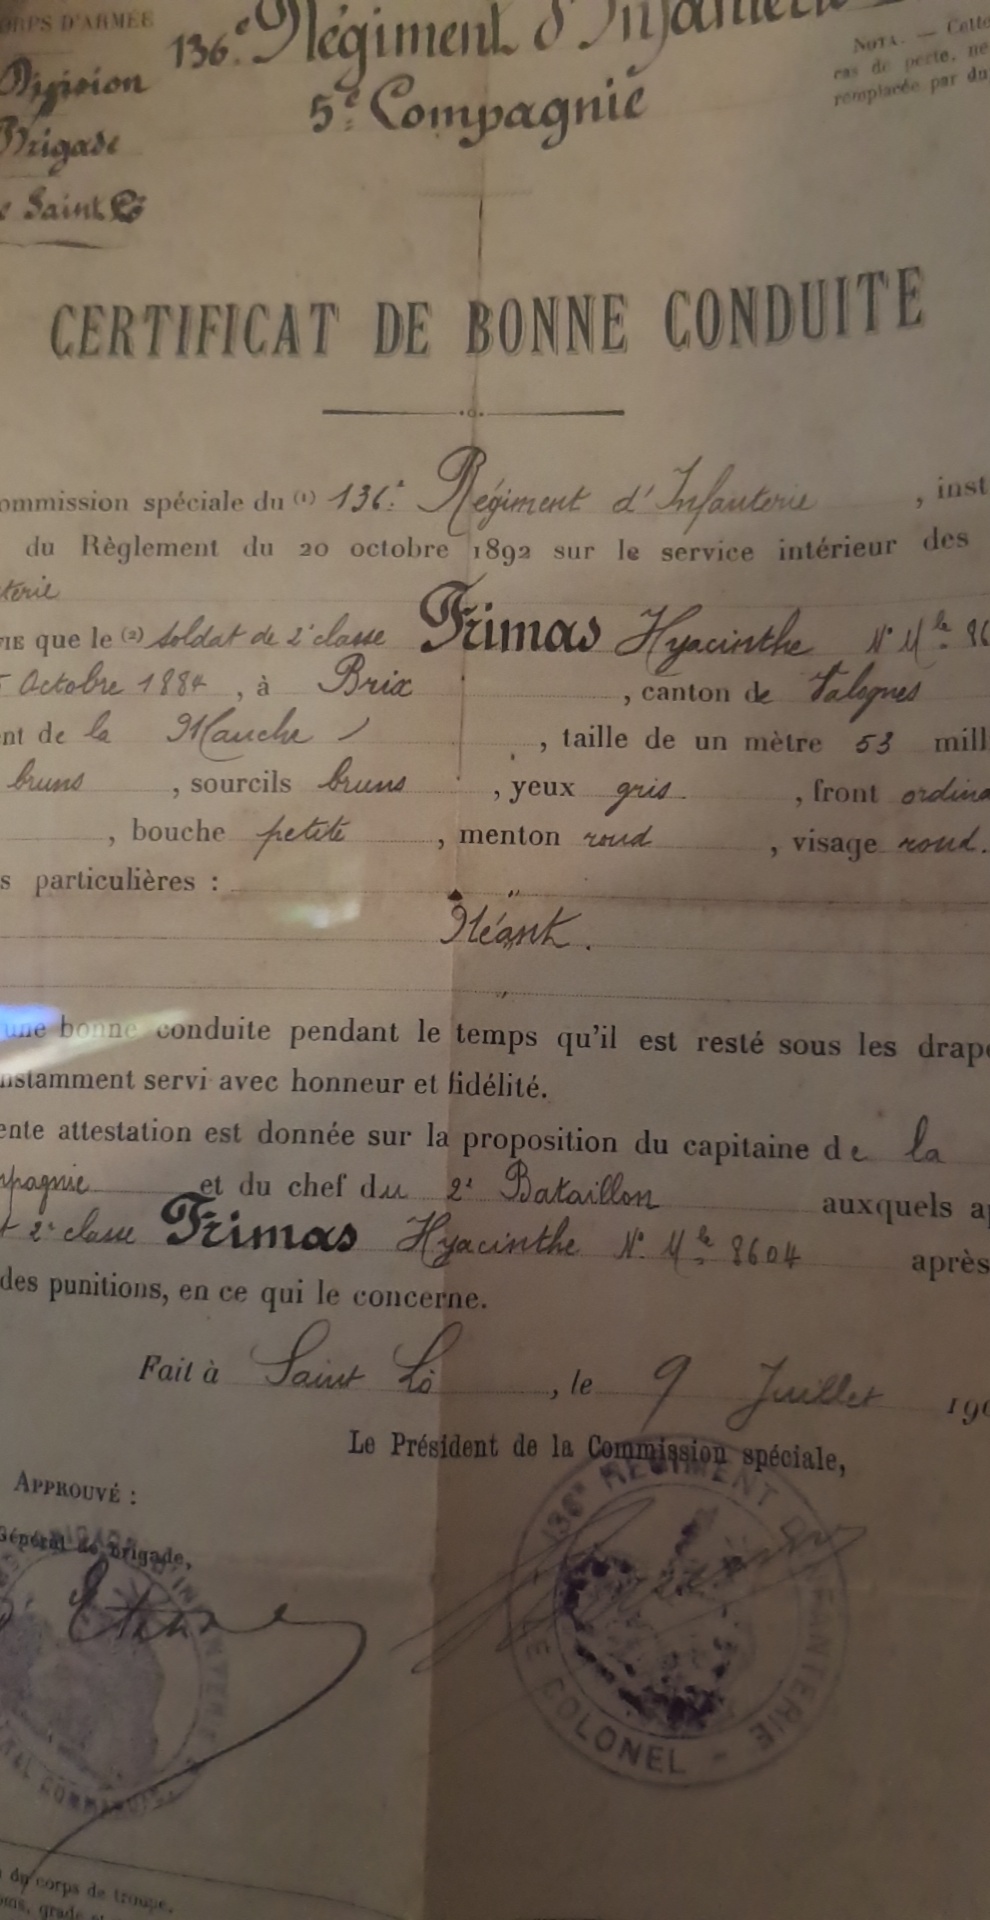 CORPS D'ARMÉE
Division
Brigade
Saint
136.e Régiment d'Infanterie
5.e Compagnie
NOTA. — Cette
cas de perte, ne
remplacée par du
CERTIFICAT DE BONNE CONDUITE
ommission spéciale du (1) 136.e Régiment d'Infanterie , inst
du Règlement du 20 octobre 1892 sur le service intérieur des
terie
FIE que le (2) soldat de 2e classe Frimas Hyacinthe No Mle 86
Octobre 1884 , à Brix , canton de Valognes
nt de la Manche , taille de un mètre 53 mill
bruns , sourcils bruns , yeux gris , front ordina
, bouche petite , menton rond , visage rond.
s particulières : "
Néant.
"
une bonne conduite pendant le temps qu'il est resté sous les drape
nstamment servi avec honneur et fidélité.
ente attestation est donnée sur la proposition du capitaine de la
mpagnie et du chef du 2e Bataillon auxquels ap
t 2e classe Frimas Hyacinthe No Mle 8604 après
des punitions, en ce qui le concerne.
Fait à Saint Lô , le 9 Juillet 190
Le Président de la Commission spéciale,
APPROUVÉ :
Général de brigade,
136e RÉGIMENT D'INFANTERIE
LE COLONEL
du corps de troupe.
oms, grade